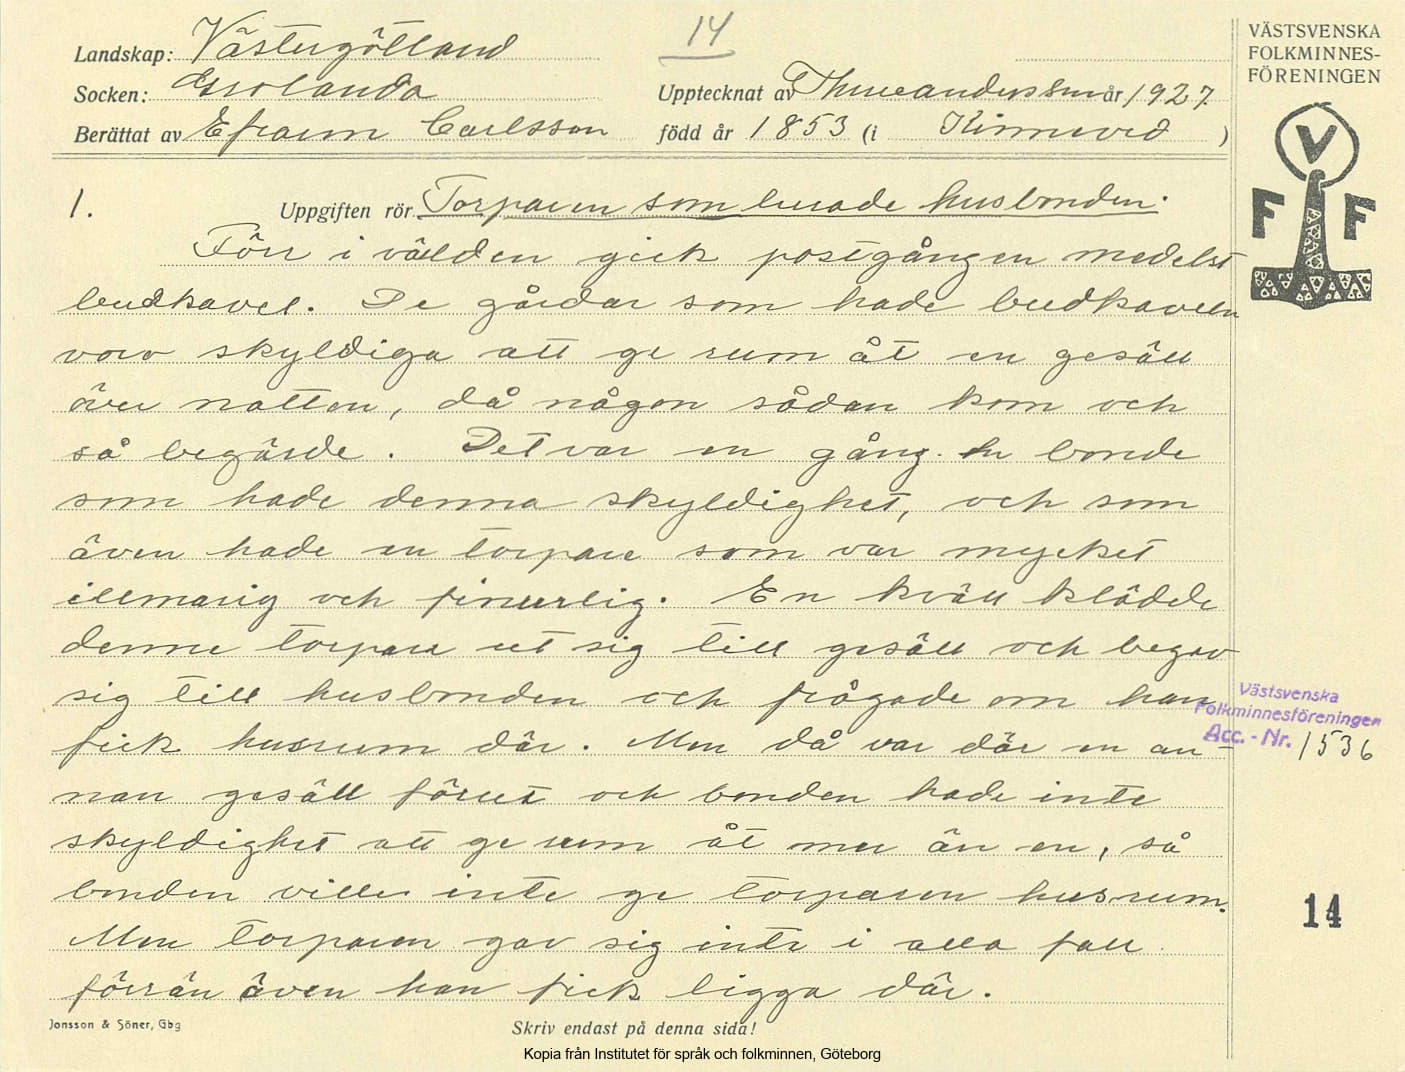 14
VÄSTSVENSKA
FOLKMINNES-
FÖRENINGEN
Landskap: Västergötland
Socken: Essolanda
Upptecknat av Thure Andersson år 1927.
Berättat av Efraim Carlsson född år 1853 (i Kinneved )
V
F F
1. Uppgiften rör Torparen som lurade husbonden.
Förr i världen gick postgången medelst
budkavel. De gårdar som hade budkaveln
voro skyldiga att ge rum åt en gesäll
över natten, då någon sådan kom och
så begärde. Det var en gång en bonde
som hade denna skyldighet, och som
även hade en torpare som var mycket
illmarig och finurlig. En kväll klädde
denne torpare ut sig till gesäll och begav
sig till husbonden och frågade om han
fick husrum där. Men då var där en an-
nan gesäll förut och bonden hade inte
skyldighet att ge rum åt mer än en, så
bonden ville inte ge torparen husrum.
Men torparen gav sig inte i alla fall
förrän även han fick ligga där.
Västsvenska
Folkminnesföreningen
Acc.-Nr. 1536
14
Jonsson & Söner, Gbg
Skriv endast på denna sida!
Kopia från Institutet för språk och folkminnen, Göteborg